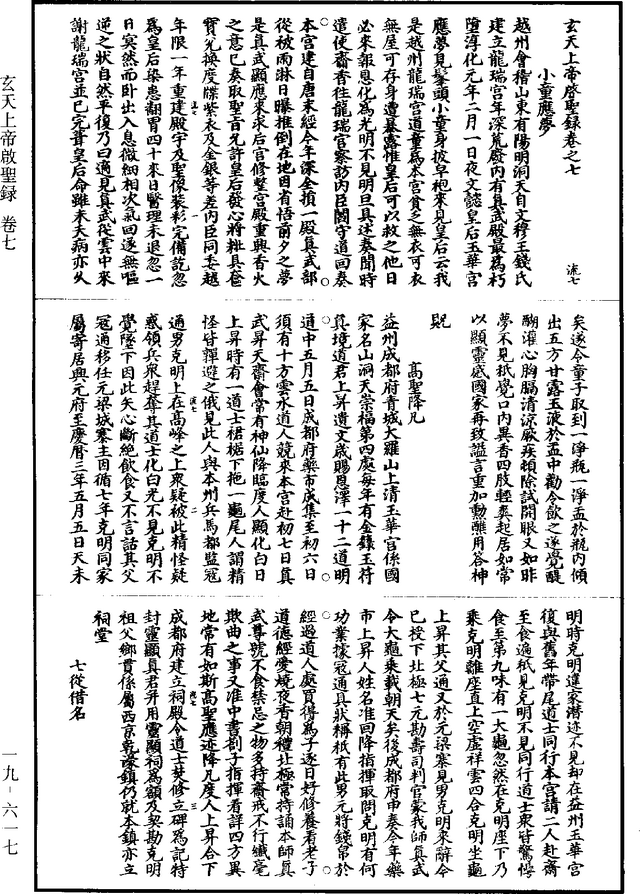 玄天上帝啓聖録卷之七
流七
小童應夢
越州會稽山東有陽明洞天自文穆王錢氏
建立龍瑞宫年深荒廢内有真武殿最爲朽
墮淳化元年二月一日夜文懿皇后玉華宫
應夢見髽頭小童身披皁袍來見皇后云我
是越州龍瑞宫道童爲本宫貧乏無衣可衣
無屋可存身遭暴露惟皇后可以救之他日
必來報恩化爲光明不見明旦具述奏聞時
遣使齎香往龍瑞宫察訪内臣閻守道回奏
本宫建自唐末經今年深全損一殿真武部
從被雨淋日曝推倒在地因省悟前夕之夢
是真武顯應來求后宫修整宫殿重興香火
之意已奏取聖旨允許皇后發心將粧具奩
寳兑換度牒紫衣及金銀等差内臣同委越
年限一年重建殿宇及聖像裝彩完備訖忽
爲皇后染患翻胃四十來日醫理未退忽一
日㝠然而卧出入息微細相次氣回遂無嘔
逆之狀自然平復乃曰適見真武從雲中來
謝龍瑞宫並已完葺皇后命雖未夭病亦久
矣遂令童子取到一淨瓶一淨盂於瓶内傾
出五方甘露玉液於盂中勸令飲之遂覺醍
醐灌心胸膈清凉厥疾頓除試開眼又如昨
夢不見祇覺口内異香四肢輕爽起居如常
以顯靈感國家再致謚言重加勳醮用答神
貺
高聖降凡
益州成都府青城大羅山上清玉華宫係國
家名山洞天崇福第四處每年有金籙玉符
真境道君上昇遺文歲賜恩澤一十二道明
通中五月五日成都府藥市成集至初六日
須有十方雲水道人競來本宫赴初七日真
武昇天齋會常有神仙降臨度人顯化白日
上昇時有一道士裙裾下拖一龜尾人謂精
怪皆譁避之俄見此人與本州兵馬都監寇
通男克明上在高峰之上衆疑被此精怪疑
惑領兵衆趕奪其道士化白光不見克明不
覺墜下因此失心斷絶飲食又不言話其父
寇通移任元梁城寨主因循七年克明同家
屬寄居興元府至慶曆三年五月五日天未
明時克明違家潛迹不見却在益州玉華宫
復與舊年帶尾道士同行本宫請二人赴齋
至食遍祇見克明不見同行道士衆皆驚愕
食至第九味有一大龜忽然在克明座下乃
乘克明離座直上空虚祥雲四合克明坐龜
上昇其父通又於元梁寨見男克明來辭令
已授下北極七元勘壽司判官蒙我師真武
令大龜乘載朝天矣後成都府申奏今年藥
市上昇人姓名准回降指揮取問克明有何
功業據寇通具狀稱祇有此男元將錢帛於
經過道人處買得爲子逐日好修養看老子
道德經愛燒夜香朝禮北極常持誦本師真
武尊號不食禁忌之物多持齋戒不行纖毫
欺曲之事又准中書劄子指揮看詳四方異
地常有如斯高聖應迹降凡度人上昇合下
成都府建立祠殿令道士焚修立碑爲記特
封靈顯真君并用靈顯祠爲額及契勘克明
祖父鄉貫係屬西京乾濠鎮仍就本鎮亦立
祠堂
七從借名
玄天上帝啟聖録 卷七
一九－六一七